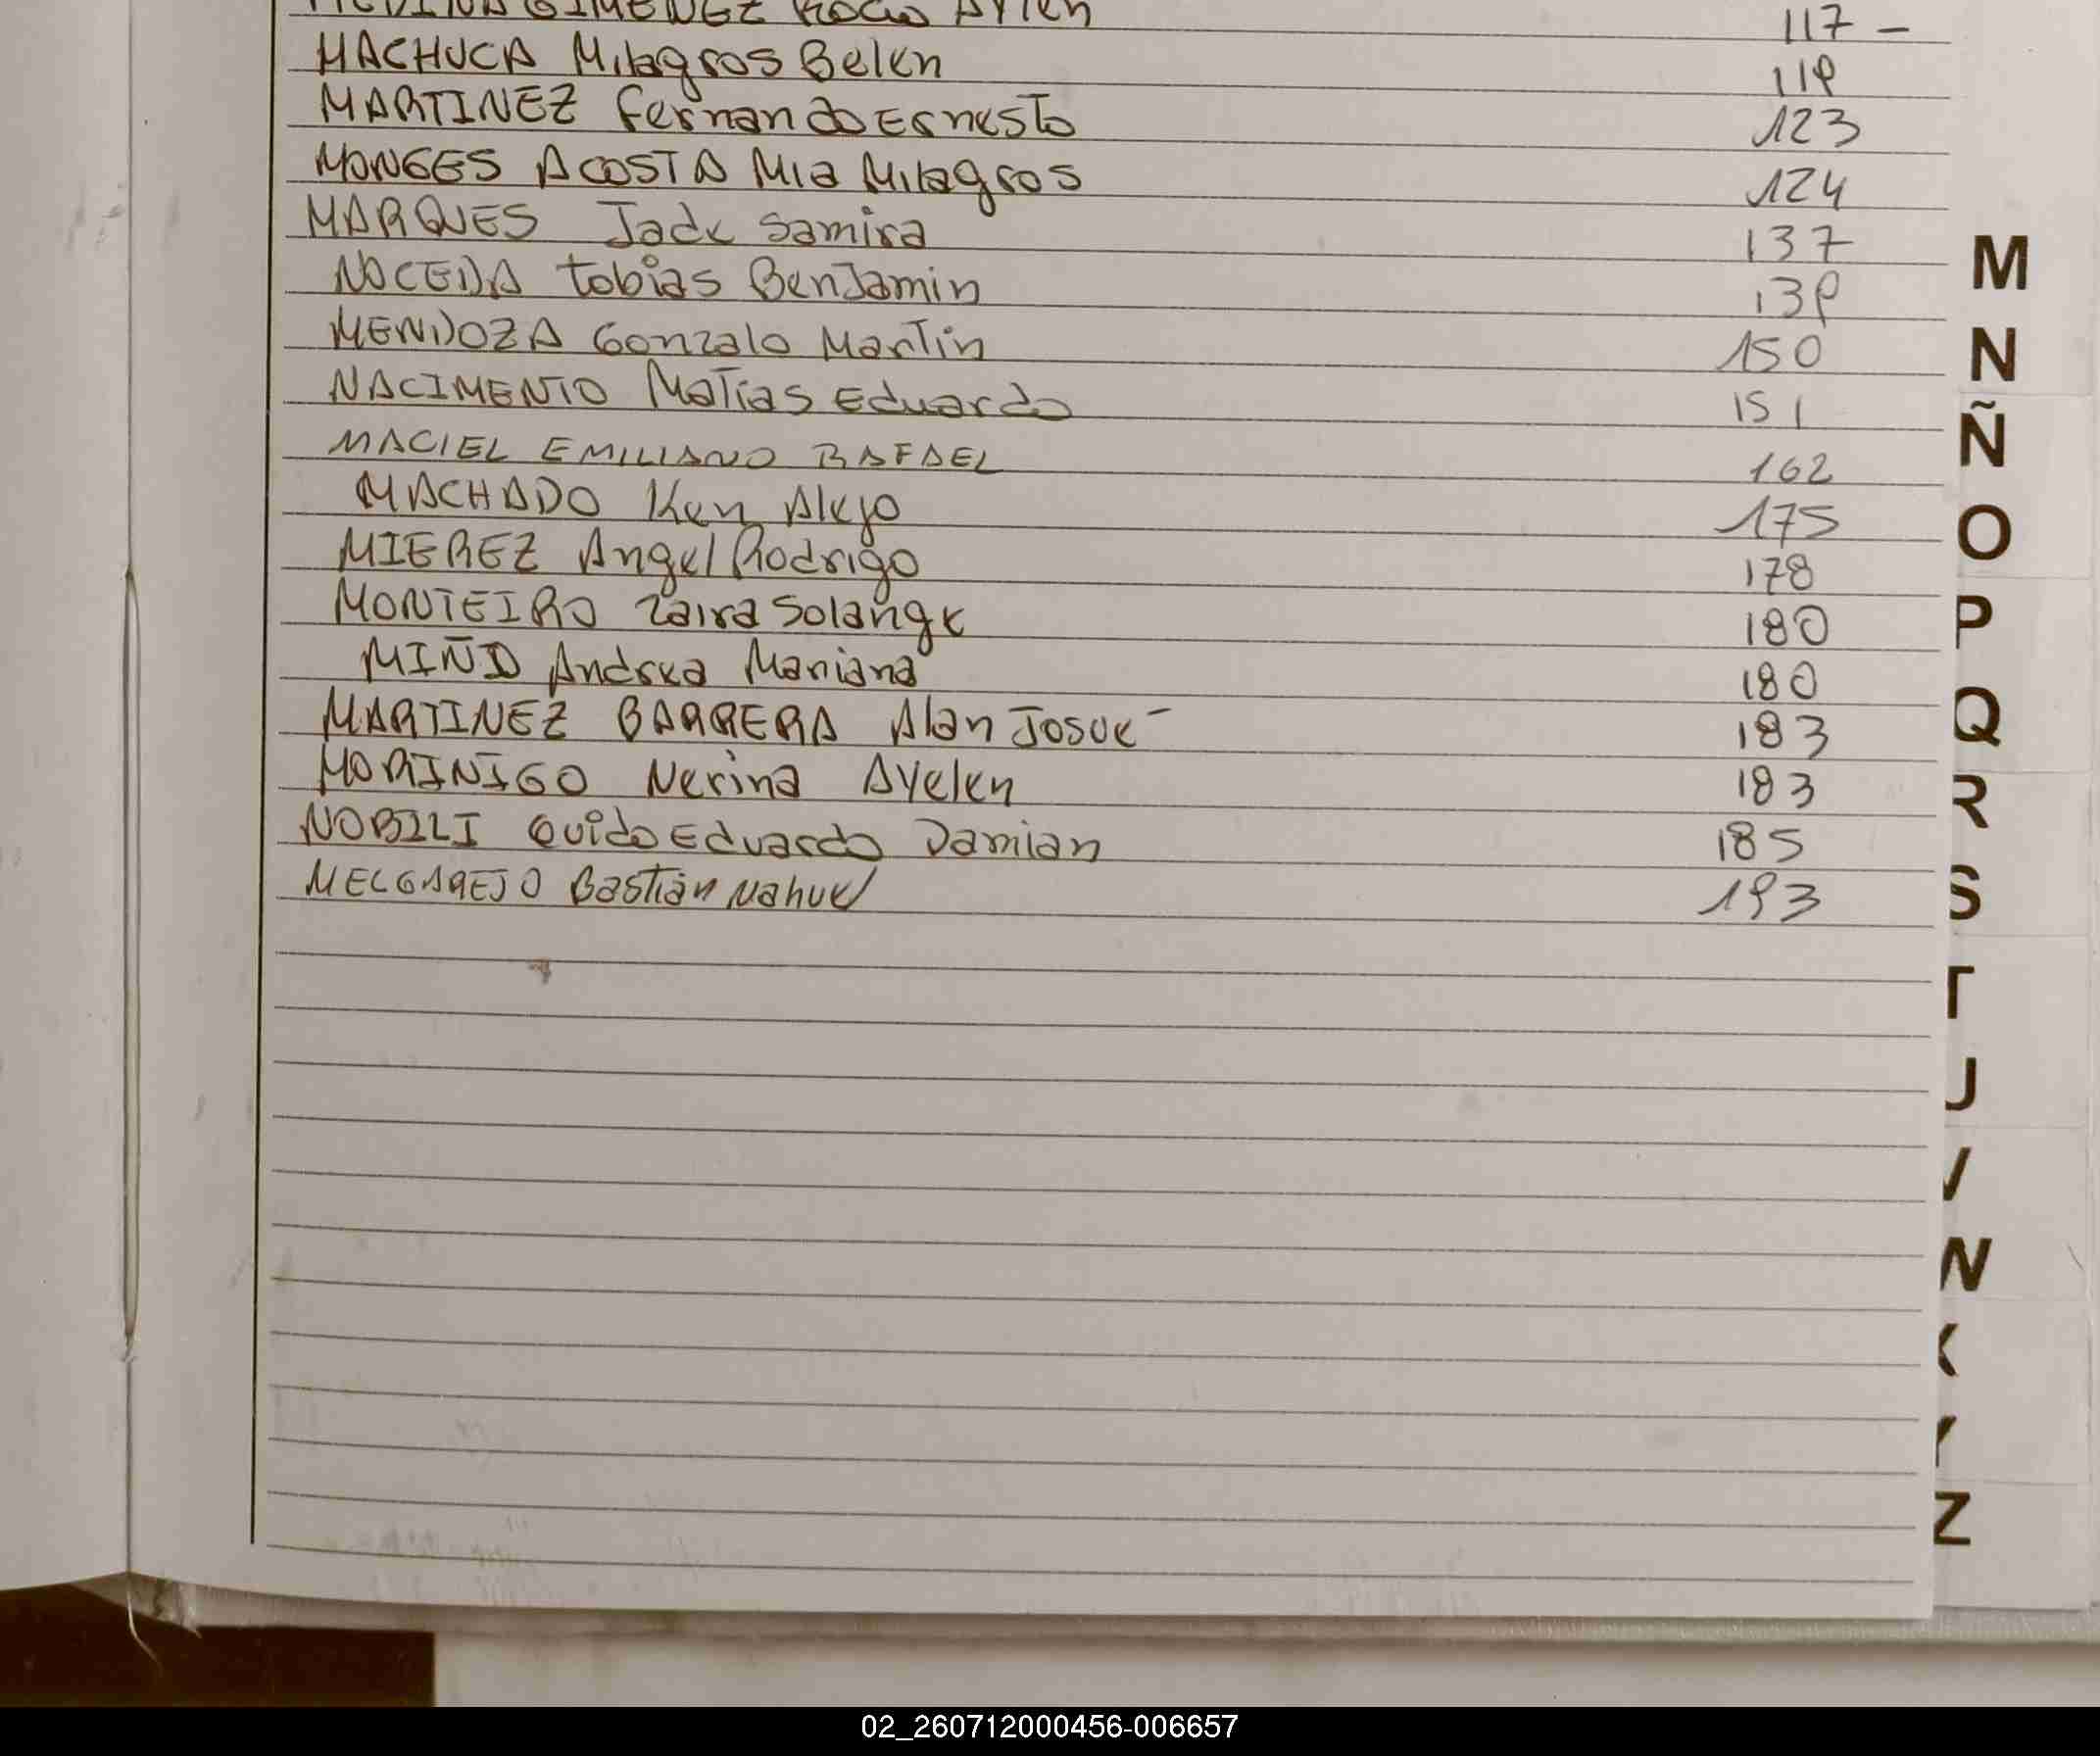 MEDINA GIMENEZ Rocio Aylen 117 -
MACHUCA Milagros Belen 119
MARTINEZ Fernando Ernesto 123
MONGES ACOSTA Mia Milagros 124
MARQUES Jade Samira 137
NOCEDA tobias BenJamin 139
MENDOZA Gonzalo Martin 150
NACIMENTO Matias Eduardo 151
MACIEL EMILIANO RAFAEL 162
MACHADO Ken Alejo 175
MIEREZ Angel Rodrigo 178
MONTEIRO Zaira Solange 180
MIÑO Andrea Mariana 180
MARTINEZ BARRERA Alan Josue - 183
MORINIGO Nerina Ayelen 183
NOBILI Guido Eduardo Damian 185
MELGAREJO Bastian Nahuel 193
M
N
Ñ
O
P
Q
R
S
T
U
V
W
X
Y
Z
02_260712000456-006657